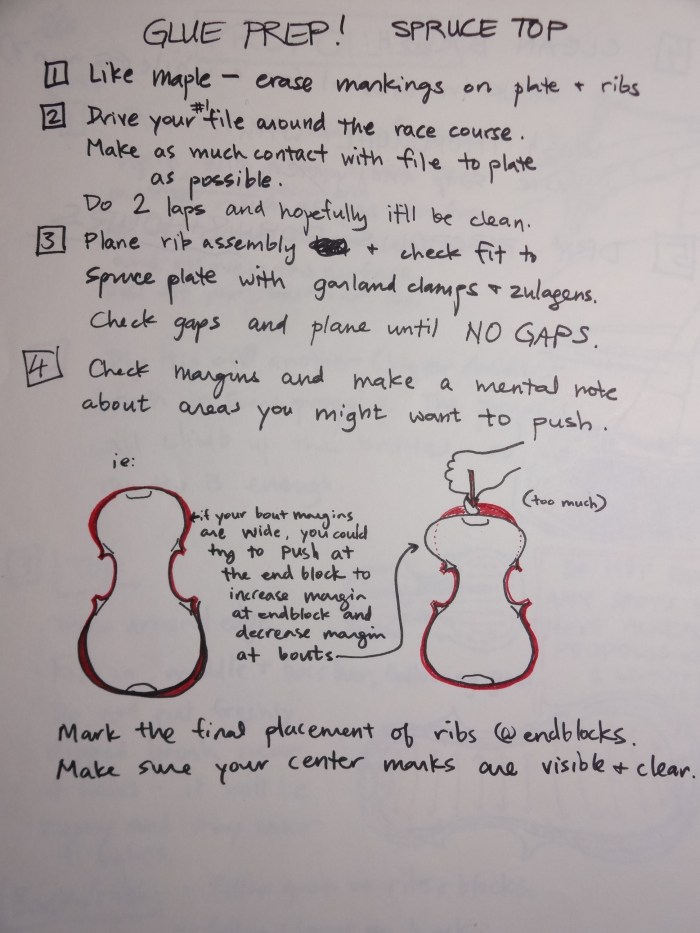 GLUE PREP! SPRUCE TOP
1 Like maple - erase markings on plate + ribs
2 Drive your #1 file around the race course.
Make as much contact with file to plate
as possible.
Do 2 laps and hopefully it'll be clean.
3 Plane rib assembly + check fit to
spruce plate with garland clamps + zulagens.
Check gaps and plane until NO GAPS.
4 Check margins and make a mental note
about areas you might want to push.
ie:
if your bout margins
are wide, you could
try to push at
the end block to
increase margin
at endblock and
decrease margin
at bouts
(too much)
Mark the final placement of ribs @ endblocks.
Make sure your center marks are visible + clear.